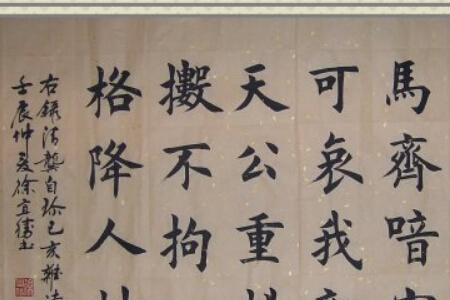 馬齊喑
可哀我
天公重
擻不拘
格降人
右錄清龔自珍己亥雜詩
壬辰仲夏徐宜書